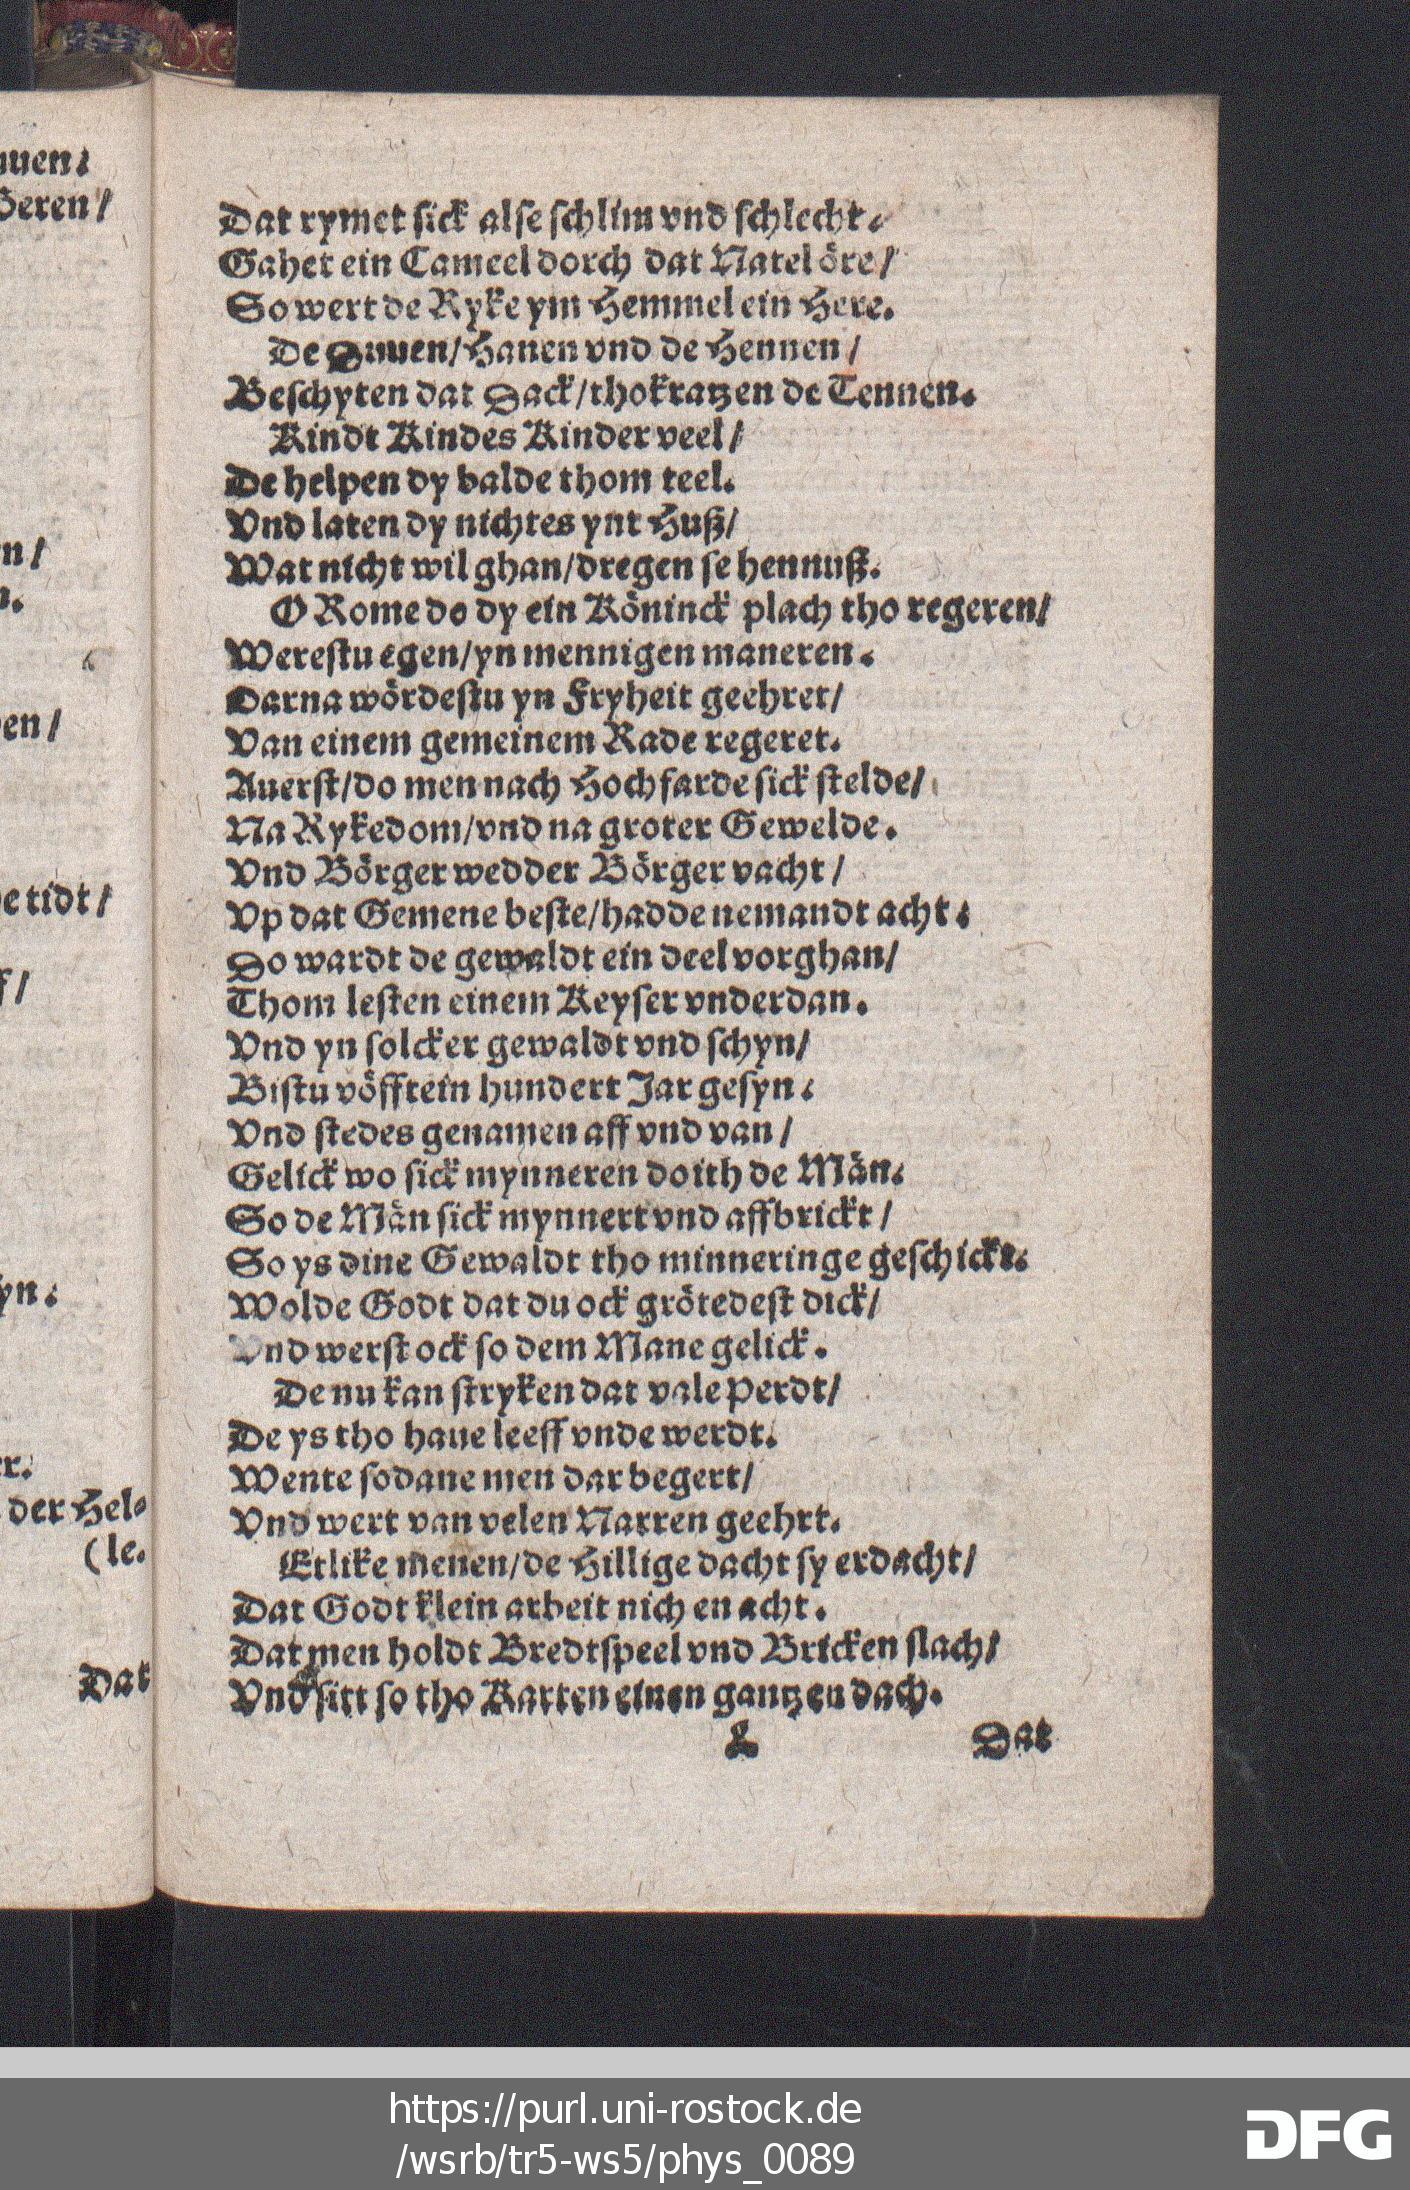 nuen.
Heren/
n/
n.
en/
e tidt/
f/
yn.
er.
der Hel-
(le.
Dat
Dat rymet sick alse schlim vnd schlecht.
Gahet ein Cameel dorch dat Natel öre/
So wert de Ryke ym Hemmel ein Here.
De Duuen/Hanen vnd de Hennen/
Beschyten dat Dack/thokratzen de Tennen.
Kindt Kindes Kinder veel/
De helpen dy balde thom teel.
Vnd laten dy nichtes ynt Huß/
Wat nicht wil ghan/dregen se hennuß.
O Rome do dy ein Köninck plach tho regeren/
Werestu egen/yn mennigen maneren.
Darna wördestu yn Fryheit geehret/
Van einem gemeinem Rade regeret.
Auerst/do men nach Hochfarde sick stelde/
Na Rykedom/vnd na groter Gewelde.
Vnd Börger wedder Börger vacht/
Vp dat Gemene beste/hadde nemandt acht.
Do wardt de gewaldt ein deel vorghan/
Thom lesten einem Keyser vnderdan.
Vnd yn solcker gewaldt vnd schyn/
Bistu vöfftein hundert Jar gesyn.
Vnd stedes genamen aff vnd van/
Gelick wo sick mynneren doith de Män.
So de Män sick mynnert vnd affbrickt/
So ys dine Gewaldt tho minneringe geschickt.
Wolde Godt dat du ock grötedest dick/
Vnd werst ock so dem Mane gelick.
De nu kan stryken dat vale Perdt/
De ys tho haue leeff vnde werdt.
Wente sodane men dar begert/
Vnd wert van velen Narren geehrt.
Etlike menen/de Hillige dacht sy erdacht/
Dat Godt klein arbeit nich en acht.
Dat men holdt Bredtspeel vnd Bricken slach/
Vnd sitt so tho Karten einen gantzen dach.
L Dat
https://purl.uni-rostock.de
/wsrb/tr5-ws5/phys_0089
DFG